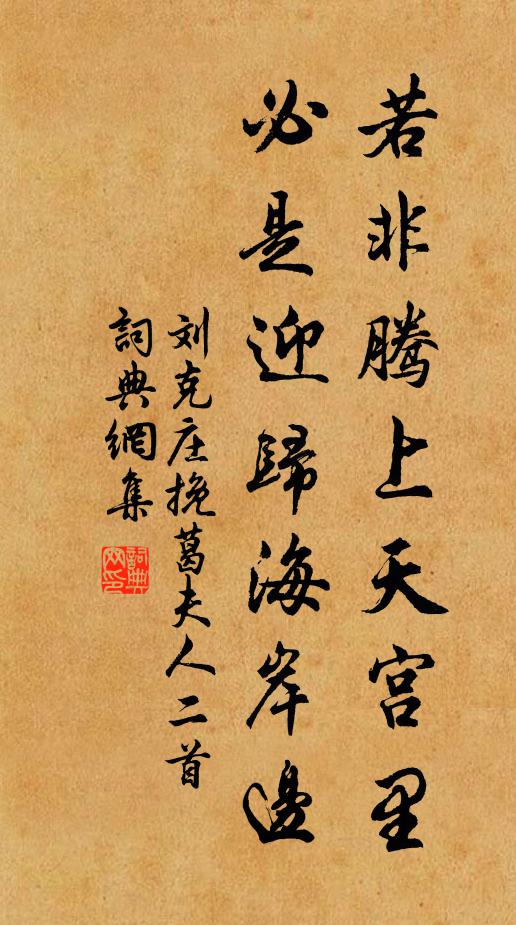 若非腾上天宫里
必是迎歸海岸邊
刘克庄挽葛夫人二首
詞典網集
詞典網印